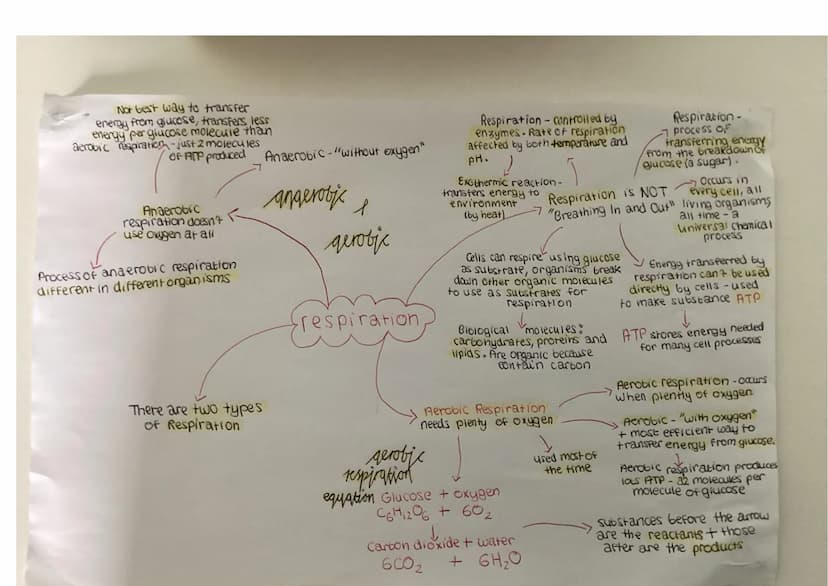 Not best way to transfer
energy from glucose, transfers less
energy per glucose molecule than
aerobic respiration - just 2 molecules
of ATP produced
Anaerobic - "without oxygen"
anaerobic &
aerobic
Anaerobic
respiration doesn't
use oxygen at all
Process of anaerobic respiration
different in different organisms
respiration
There are two types
of Respiration
Respiration - controlled by
enzymes. Rate of respiration
affected by both temperature and
pH.
Respiration -
process of
transferring energy
from the breakdown of
glucose (a sugar).
Exothermic reaction -
transfers energy to
environment
(by heat)
Respiration is NOT
"Breathing In and Out"
Occurs in
every cell, all
living organisms
all time - a
universal chemical
process
Cells can respire using glucose
as substrate, organisms break
down other organic molecules
to use as substrates for
respiration
Energy transferred by
respiration can't be used
directly by cells - used
to make substance ATP
Biological molecules:
carbohydrates, proteins and
lipids. Are organic because
contain carbon
ATP stores energy needed
for many cell processes
Aerobic Respiration
needs plenty of oxygen
Aerobic respiration - occurs
when plenty of oxygen
Aerobic - "with oxygen"
+ most efficient way to
transfer energy from glucose.
used most of
the time
Aerobic respiration produces
lots ATP - 32 molecules per
molecule of glucose
aerobic
respiration
equation
Glucose + oxygen
C6H12O6 + 6O2
Carbon dioxide + water
6CO2 + 6H2O
substances before the arrow
are the reactants + those
after are the products